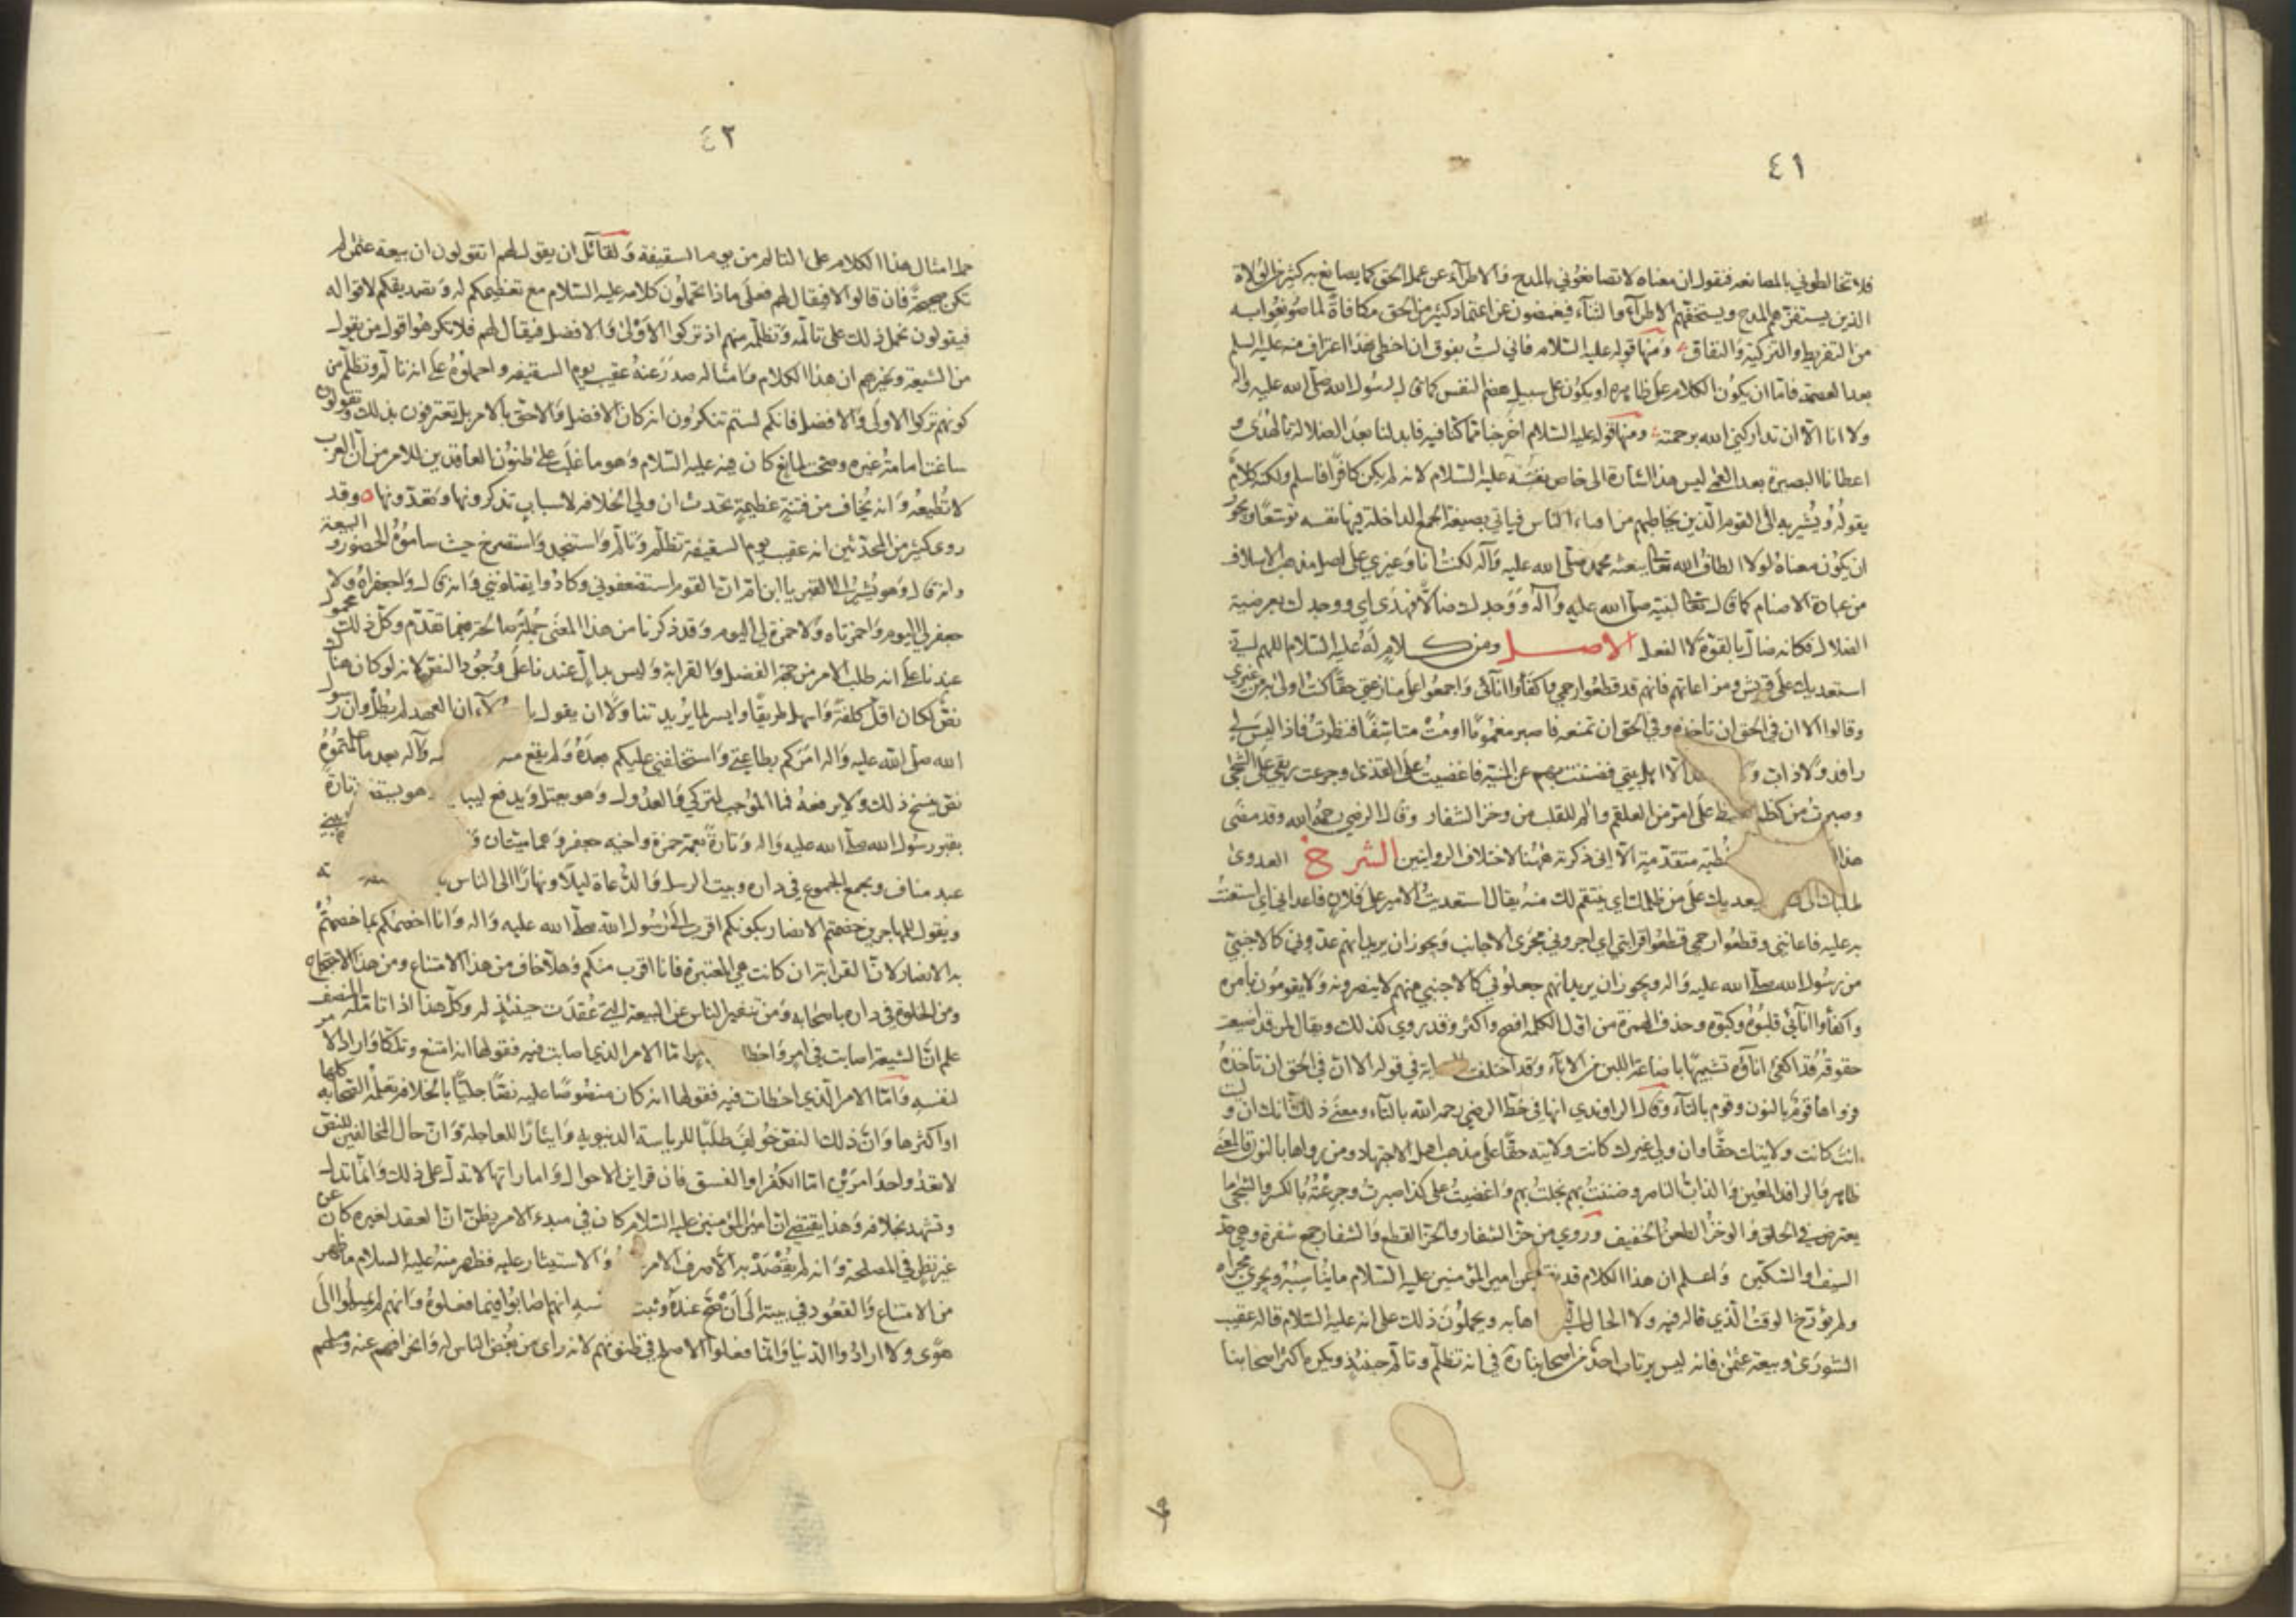 ٤١
فلا تخالطوني بالمصانعه فنقول ان معناه لا تصانعوني بالمدح والاطراء عن عمل الحق كما يصانع به كثير من الولاة
الذين يستفزهم المدح ويستخفهم الاطراء والثناء فيغمضون عن اعتماد كثير من الحق مكافاة لما صونعوا به
من التقريظ والتزكية والنفاق ومنها قوله عليه السلام فاني لست بفوق ان اخطى هذا اعتراف منه عليه السلم
بعدم العصمه فاما ان يكون الكلام على ظاهره او يكون على سبيل هضم النفس كما قال رسول الله صلى الله عليه واله
ولا انا الا ان تداركني الله برحمته ومنها قوله عليه السلام اخرجنا مما كنا فيه فابدلنا بعد الضلاله بالهدى و
اعطانا البصيرة بعد العمى ليس هذا اشارة الى خاص نفسه عليه السلام لانه لم يكن كافرا فاسلم ولكنه كلام
يقوله ويشير به الى القوم الذين يخاطبهم من افناء الناس فياتي بصيغة الجمع الداخلة فيها نفسه توسعا ويجوز
ان يكون معناه لولا الطاف الله تعالى ببعثة محمد صلى الله عليه وآله لكنت انا وغيري على اصل مذهب الاسلاف
من عبادة الاصنام كما قال تعالى لنبيه صلى الله عليه وآله ووجدك ضالا فهدى اي ووجدك بعرضية
الضلال فكانه ضال بالقوة لا بالفعل الاصل ومن كلام له عليه السلام اللهم اني
استعديك على قريش ومن اعانهم فانهم قد قطعوا رحمي واكفأوا انآئي واجمعوا على منازعتي حقا كنت اولى به من غيري
وقالوا الا ان في الحق ان تأخذه وفي الحق ان تمنعه فاصبر مغموما او مت متاسفا فنظرت فاذا ليس لي
رافد ولا ذاب و الا اهل بيتي فضننت بهم عن المنية فاغضيت على القذى وجرعت ريقي على الشجى
وصبرت من كظم على امر من العلقم وآلم للقلب من وخز الشفار وقال الرضي رحمه الله وقد مضى
هذا خطبة متقدمة الا اني ذكرته ههنا لاختلاف الروايتين الشرح العدوى
طلبك الى يعديك على من ظلمك اي ينتقم لك منه يقال استعديت الامير على فلان فاعداني اي استعنت
به عليه فاعانني وقطعوا رحمي قطعوا قرابتي اي اجروني مجرى الاجانب ويجوز ان يريد انهم عدوني كالاجنبي
من رسول الله صلى الله عليه واله ويجوز ان يريد انهم جعلوني كالاجنبي منهم لا ينصرونه ولا يقومون بامره
واكفأوا انآئي قلبوه وكبوه وحذف الهمزة من اول الكلمه افصح واكثر وقد روي كذلك ويقال لمن قد اضيعت
حقوقه قد اكفئ اناؤه تشبيها باضاعة اللبن من الاناء وقد اختلفت في قوله الا ان في الحق ان تاخذه
فرواها قوم بالنون وقوم بالتاء وقال الراوندي انها في خط الرضي رحمه الله بالتاء ومعنى ذلك انك ان وليت
انت كانت ولايتك حقا وان ولي غيرك كانت ولايته حقا على مذهب اهل الاجتهاد ومن رواها بالنون فالمعنى
ظاهر والرافد المعين والذاب الناصر وضننت بهم بخلت بهم واغضيت على كذا صبرت وجرعت بالكسر والشجى ما
يعترض في الحلق والوخز الطعن الخفيف وروي من حز الشفار والحز القطع والشفار جمع شفرة وهي حد
السيف والسكين واعلم ان هذا الكلام قد عن امير المؤمنين عليه السلام ما يناسبه ويجري مجراه
ولم يؤرخ الوقت الذي قاله فيه ولا الحال التي اصحابه ويحملون ذلك على انه عليه السلام قاله عقيب
الشورى وبيعة عثمن فانه ليس يرتاب احد من اصحابنا في انه تظلم وتالم حينئذ ويكره اكثر اصحابنا
٤٢
حمل امثال هذا الكلام على التالم من يوم السقيفة ولقائل ان يقول لهم اتقولون ان بيعة عثمن لم
تكن صحيحة فان قالوا لا فيقال لهم فعلى ماذا تحملون كلامه عليه السلام مع تعظيمكم له وتصديقكم لاقواله
فيقولون نحمل ذلك على تالمه وتظلمه منهم اذ تركوا الاولى والافضل فيقال لهم فلا تكرهوا قول من يقول
من الشيعة وغيرهم ان هذا الكلام وامثاله صدر عنه عقيب يوم السقيفه واحملوه على انه تالم وتظلم من
كونهم تركوا الاولى والافضل فانكم لستم تنكرون انه كان الافضل والاحق بالامر بل تعترفون بذلك وتقولون
ساغت امامة غيره وصحت لمانع كان فيه عليه السلام وهو ما غلب على ظنون العاقدين للامر من ان العرب
لا تطيعه وانه يخاف من فتنة عظيمة تحدث ان ولي الخلافه لاسباب تذكرونها وتعدونها وقد
روى كثير من المحدثين انه عقيب يوم السقيفة تظلم وتالم واستنجد واستصرخ حيث ساموه الحضور والبيعة
وانه قال وهو يشير الى القبر يا ابن ام ان القوم استضعفوني وكادوا يقتلونني وانه قال واجعفراه ولا
جعفر لي اليوم واحمزتاه ولا حمزة لي اليوم وقد ذكرنا من هذا المعنى جملة صالحة فيما تقدم وكل ذلك محمول
عندنا على انه طلب الامر من جهة الفضل والقرابة وليس بدال عندنا على وجود النص لانه لو كان هناك
نص لكان اقل كلفة واسهل طريقا وايسر لما يريد تناولا ان يقول يا ان العهد لم يطل وان رسول
الله صلى الله عليه واله امركم بطاعتي واستخلفني عليكم بعده ولم يقع منه وآله بعد ما علمتموه
نص ينسخ ذلك ولا يرفعه فما الموجب لتركي والعدول
بقبر رسول الله صلى الله عليه واله وتارة بعمه حمزة واخيه جعفر وهما ميتان و
عبد مناف ويجمع الجموع في داره ويبث الرسل والدعاة ليلا ونهارا الى الناس
ويقول للمهاجرين خصمتم الانصار بكونكم اقرب الى رسول الله صلى الله عليه واله وانا اخصمكم بما خصمتم
به الانصار لان القرابة ان كانت هي المعتبرة فانا اقرب منكم وهلا خاف من هذا الامتناع ومن هذا الاحتجاج
ومن الخلوة في داره باصحابه ومن تنفير الناس عن البيعة التي عقدت حينئذ له وكل هذا اذا تامله المنصف
علم ان الشيعة اصابت في امر واخطا اما الامر الذي اصابت فيه فقولها انه امتنع وتلكأ واراد الامر
لنفسه واما الامر الذي اخطات فيه فقولها انه كان منصوصا عليه نصا جليا بالخلافه تعلمه الصحابه كلها
او اكثرها وان ذلك النص خولف طلبا للرياسة الدنيويه وايثارا للعاجلة وان حال المخالفين للنص
لا تعدو احد امرين اما الكفر او الفسق فان قراين الاحوال واماراتها لا تدل على ذلك وانما تدل
وتشهد بخلافه وهذا يقتضي ان امير المؤمنين عليه السلام كان في مبدء الامر يظن ان العقد لغيره كان عن
غير نظر في المصلحة وانه لم يقصد به الا صرف الامر والاستيثار عليه فظهر منه عليه السلام ما ظهر
من الامتناع والقعود في بيته الى ان صح عنده وثبت انهم اصابوا فيما فعلوه وانهم لم يميلوا الى
هوى ولا ارادوا الدنيا وانما فعلوا الاصلح في ظنونهم لانه راى من بغض الناس له وانحرافهم عنه وميلهم